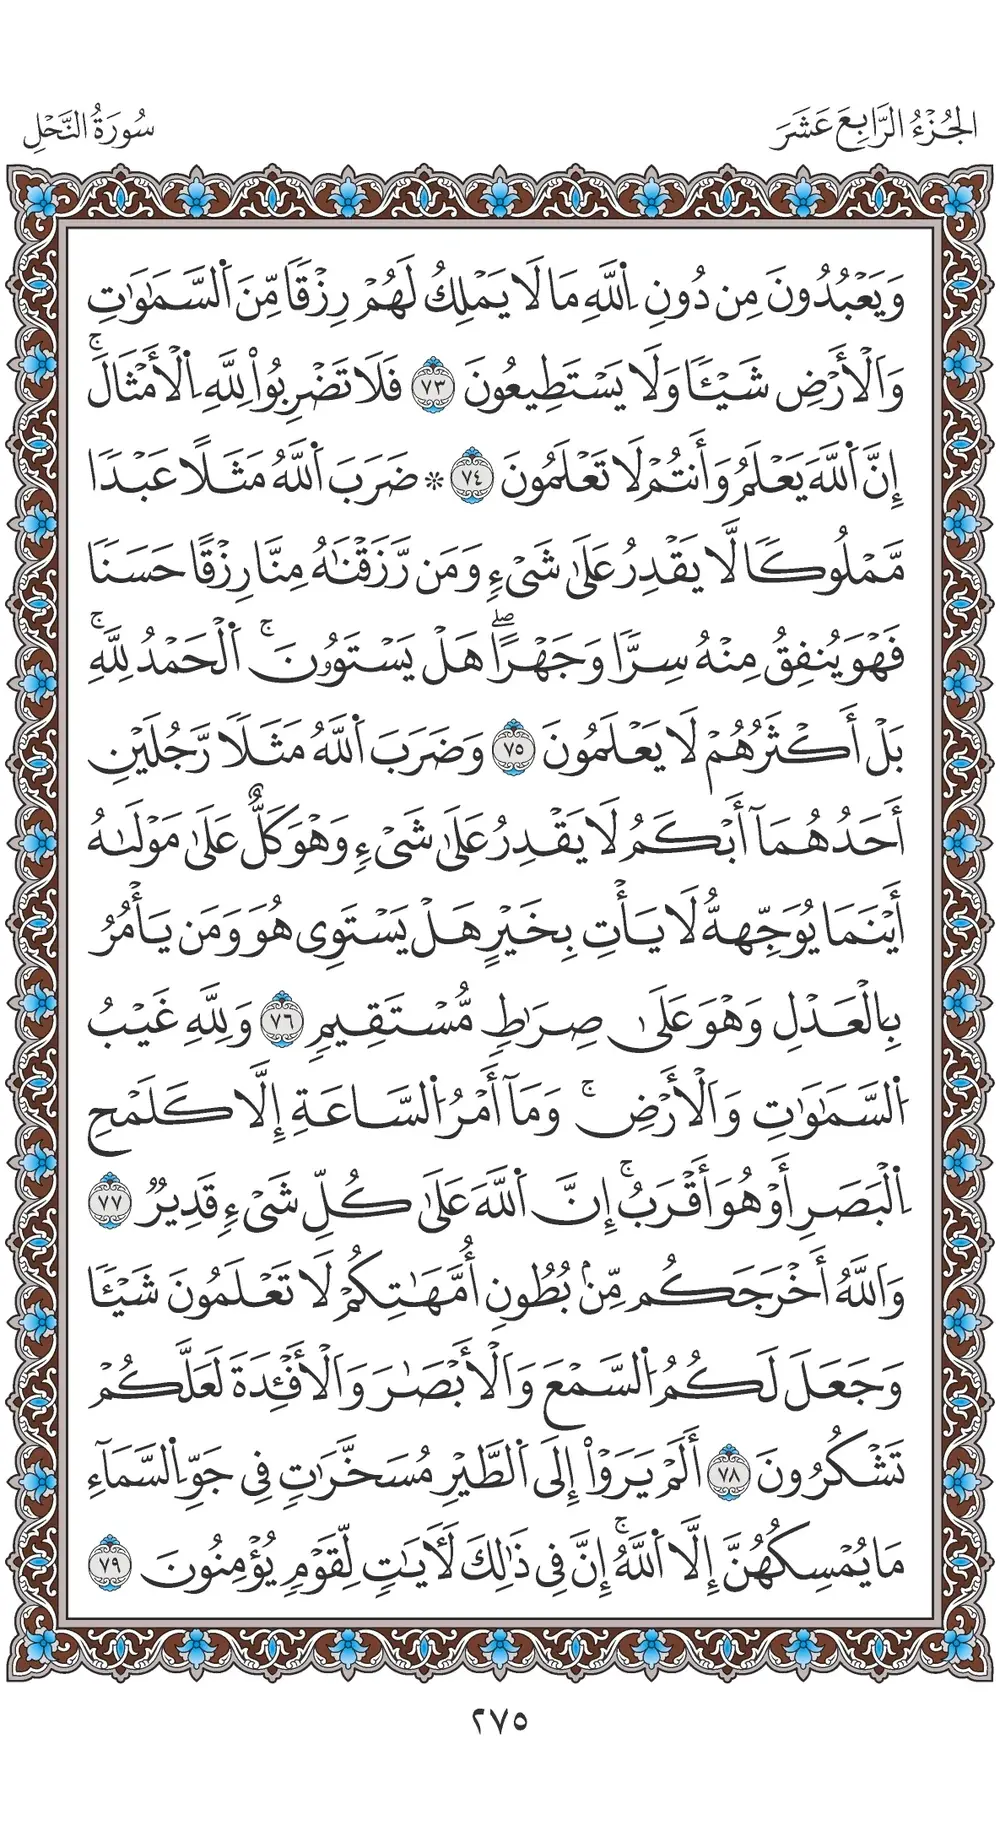 الجُزْءُ الرَّابِعَ عَشَرَ
سُورَةُ النَّحْلِ
وَيَعْبُدُونَ مِن دُونِ اِ۬للَّهِ مَا لَا يَمْلِكُ لَهُمْ رِزْقٗا مِّنَ اَ۬لسَّمَٰوَٰتِ
وَالْأَرْضِ شَيْـٔٗا وَلَا يَسْتَطِيعُونَ ٧٣ فَلَا تَضْرِبُواْ لِلَّهِ اِ۬لْأَمْثَالَۚ
إِنَّ اَ۬للَّهَ يَعْلَمُ وَأَنتُمْ لَا تَعْلَمُونَ ٧٤ * ضَرَبَ اَ۬للَّهُ مَثَلًا عَبْدٗا
مَّمْلُوكٗا لَّا يَقْدِرُ عَلَىٰ شَيْءٖ وَمَن رَّزَقْنَٰهُ مِنَّا رِزْقًا حَسَنٗا
فَهْوَ يُنفِقُ مِنْهُ سِرّٗا وَجَهْرًاۖ هَلْ يَسْتَوُۥنَۚ اَ۬لْحَمْدُ لِلَّهِۚ
بَلْ أَكْثَرُهُمْ لَا يَعْلَمُونَ ٧٥ وَضَرَبَ اَ۬للَّهُ مَثَلٗا رَّجُلَيْنِ
أَحَدُهُمَآ أَبْكَمُ لَا يَقْدِرُ عَلَىٰ شَيْءٖ وَهْوَ كَلٌّ عَلَىٰ مَوْلَىٰهُ
أَيْنَمَا يُوَجِّههُّ لَا يَأْتِ بِخَيْرٍ هَلْ يَسْتَوِي هُوَ وَمَن يَأْمُرُ
بِالْعَدْلِ وَهْوَ عَلَىٰ صِرَٰطٖ مُّسْتَقِيمٖ ٧٦ وَلِلَّهِ غَيْبُ
اُ۬لسَّمَٰوَٰتِ وَالْأَرْضِۚ وَمَآ أَمْرُ اُ۬لسَّاعَةِ إِلَّا كَلَمْحِ
اِ۬لْبَصَرِ أَوْ هُوَ أَقْرَبُۚ إِنَّ اَ۬للَّهَ عَلَىٰ كُلِّ شَيْءٖ قَدِيرٞ ٧٧
وَاللَّهُ أَخْرَجَكُم مِّنۢ بُطُونِ أُمَّهَٰتِكُمْ لَا تَعْلَمُونَ شَيْـٔٗا
وَجَعَلَ لَكُمُ اُ۬لسَّمْعَ وَالْأَبْصَٰرَ وَالْأَفْـِٔدَةَ لَعَلَّكُمْ
تَشْكُرُونَ ٧٨ أَلَمْ يَرَوْاْ إِلَى اَ۬لطَّيْرِ مُسَخَّرَٰتٖ فِي جَوِّ اِ۬لسَّمَآءِ
مَا يُمْسِكُهُنَّ إِلَّا اَ۬للَّهُۚ إِنَّ فِي ذَٰلِكَ لَأٓيَٰتٖ لِّقَوْمٖ يُؤْمِنُونَ ٧٩
٢٧٥